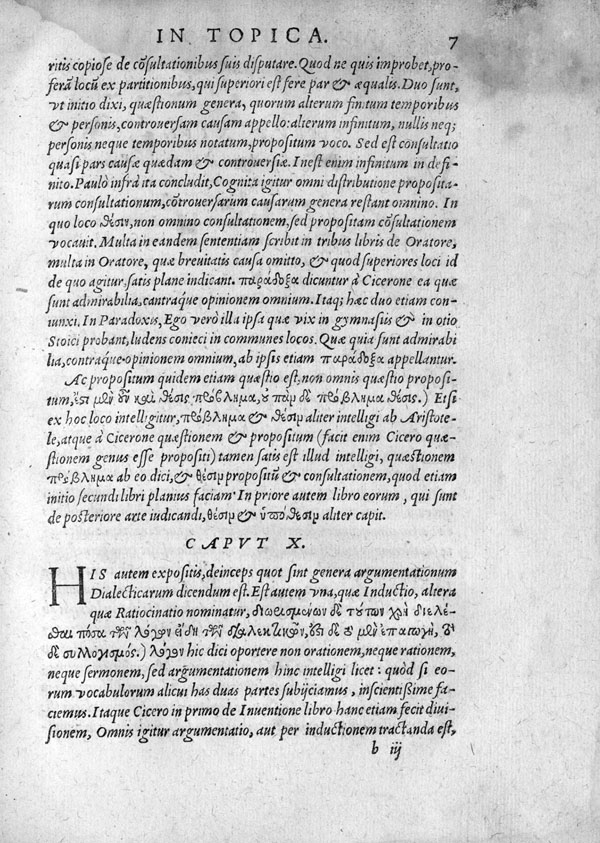 IN TOPICA. 7
ritis copiose de cõsultationibus suis disputare. Quod ne quis improbet, pro-
ferã locũ ex partitionibus, qui superiori est fere par & æqualis. Duo sunt,
vt initio dixi, quæstionum genera, quorum alterum finitum temporibus
& personis, controuersam causam appello: alterum infinitum, nullis neq;
personis neque temporibus notatum, propositum voco. Sed est consultatio
quasi pars causæ quædam & controuersiæ. Inest enim infinitum in defi-
nito. Paulò infrà ita concludit, Cognita igitur omni distributione proposita-
rum consultationum, cõtrouersarum causarum genera restant omnino. In
quo loco θέσιν, non omnino consultationem, sed propositam cõsultationem
vocauit. Multa in eandem sententiam scribit in tribus libris de Oratore,
multa in Oratore, quæ breuitatis causa omitto, & quod superiores loci id
de quo agitur, satis plane indicant. παράδοξα dicuntur à Cicerone ea quæ
sunt admirabilia, contraque opinionem omnium. Itaq; hæc duo etiam con-
iunxi. In Paradoxis, Ego verò illa ipsa quæ vix in gymnasiis & in otio
Stoici probant, ludens conieci in communes locos. Quæ quia sunt admirabi
lia, contraq́ue opinionem omnium, ab ipsis etiam παράδοξα appellantur.
Ac propositum quidem etiam quæstio est, non omnis quæstio proposi-
tum, ἔστι μὲν οὖν καὶ θέσις πρόβλημα, οὐ πᾶν δὲ πρόβλημα θέσις.) Etsi
ex hoc loco intelligitur, πρόβλημα & θέσιν aliter intelligi ab Aristote-
le, atque à Cicerone quæstionem & propositum (facit enim Cicero quæ-
stionem genus esse propositi) tamen satis est illud intelligi, quæstionem
πρόβλημα ab eo dici, & θέσιν propositũ & consultationem, quod etiam
initio secundi libri planius faciam. In priore autem libro eorum, qui sunt
de posteriore arte iudicandi, θέσιν & ὑπόθεσιν aliter capit.
CAPVT X.
HIS autem expositis, deinceps quot sint genera argumentationum
Dialecticarum dicendum est. Est autem vna, quæ Inductio, altera
quæ Ratiocinatio nominatur, διωρισμένων δὲ τούτων χρὴ διελέ-
σθαι πόσα τῶν λόγων εἴδη τῶν διαλεκτικῶν, ἔστι δὲ τὸ μὲν ἐπαγωγὴ, τὸ
δὲ συλλογισμός.) λόγον hic dici oportere non orationem, neque rationem,
neque sermonem, sed argumentationem hinc intelligi licet: quòd si eo-
rum vocabulorum alicui has duas partes subijciamus, inscientißime fa-
ciemus. Itaque Cicero in primo de Inuentione libro hanc etiam fecit diui-
sionem, Omnis igitur argumentatio, aut per inductionem tractanda est,
b iij